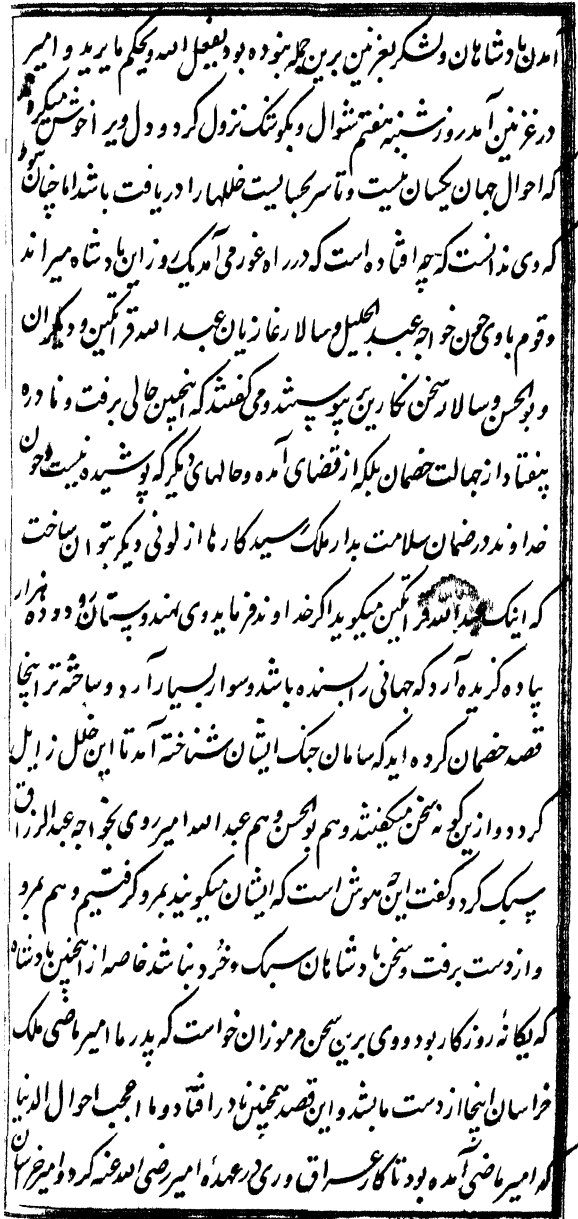 آمدن پادشاهان و لشکر بغزنین برین جمله نبوده بود یفعل الله و یحکم ما یرید و امیر
در غزنین آمد روز شنبه هفتم شوال و بکوشک نزول کرد و دل ویرا خوش میکردند
که احوال جهان یکسان نیست و تا سر بجایست خللها را دریافت باشد اما چنان
که وی ندانست که چه افتاده است که در راه غور می آمد یک روز این پادشاه میراند
و قوم با وی چون خواجه عبد الجلیل و سالار غازیان عبد الله قراتکین و دیگران
و بو الحسن و سالار سخن نگارین پیوستند و می گفتند که اینچنین حالی برفت و نادره
بیفتاد از جهالت خصمان بلکه از قضای آمده و حالهای دیگر که پوشیده نیست و چون
خداوند در ضمان سلامت بدار ملک رسید کارها از لونی دیگر بتوان ساخت
که اینک عبد الله قراتکین میکوید اکر خداوند فرماید وی بهندوستان رود و ده هزار
پیاده گزیده آرد که جهانی را بسنده باشد و سوار بسیار آرد و ساخته تر اینجا
قصه خصمان کرده اید که سامان جنک ایشان شناخته آمد تا این خلل زایل
کردد و ازین کونه سخن میکفتند و هم بو الحسن و هم عبد الله امیر روی بخواجه عبد الرزاق
سبک کرد و گفت این چه هوش است که ایشان میکویند بمرو گرفتیم و هم بمرو
و از دست برفت و سخن پادشاهان سبک و خرد نباشد خاصه از اینچنین پادشاه
که یکانه روزکار بود و وی برین سخن مرموز آن خواست که پدر ما امیر ماضی ملک
خراسان اینجا از دست ما بشد و این قصه همچنین نادر افتاد و ما اعجب احوال الدنیا
که امیر ماضی آمده بود تا کار عراق و ری در عهده امیر رضی الله عنه کرد و امیر خراسان